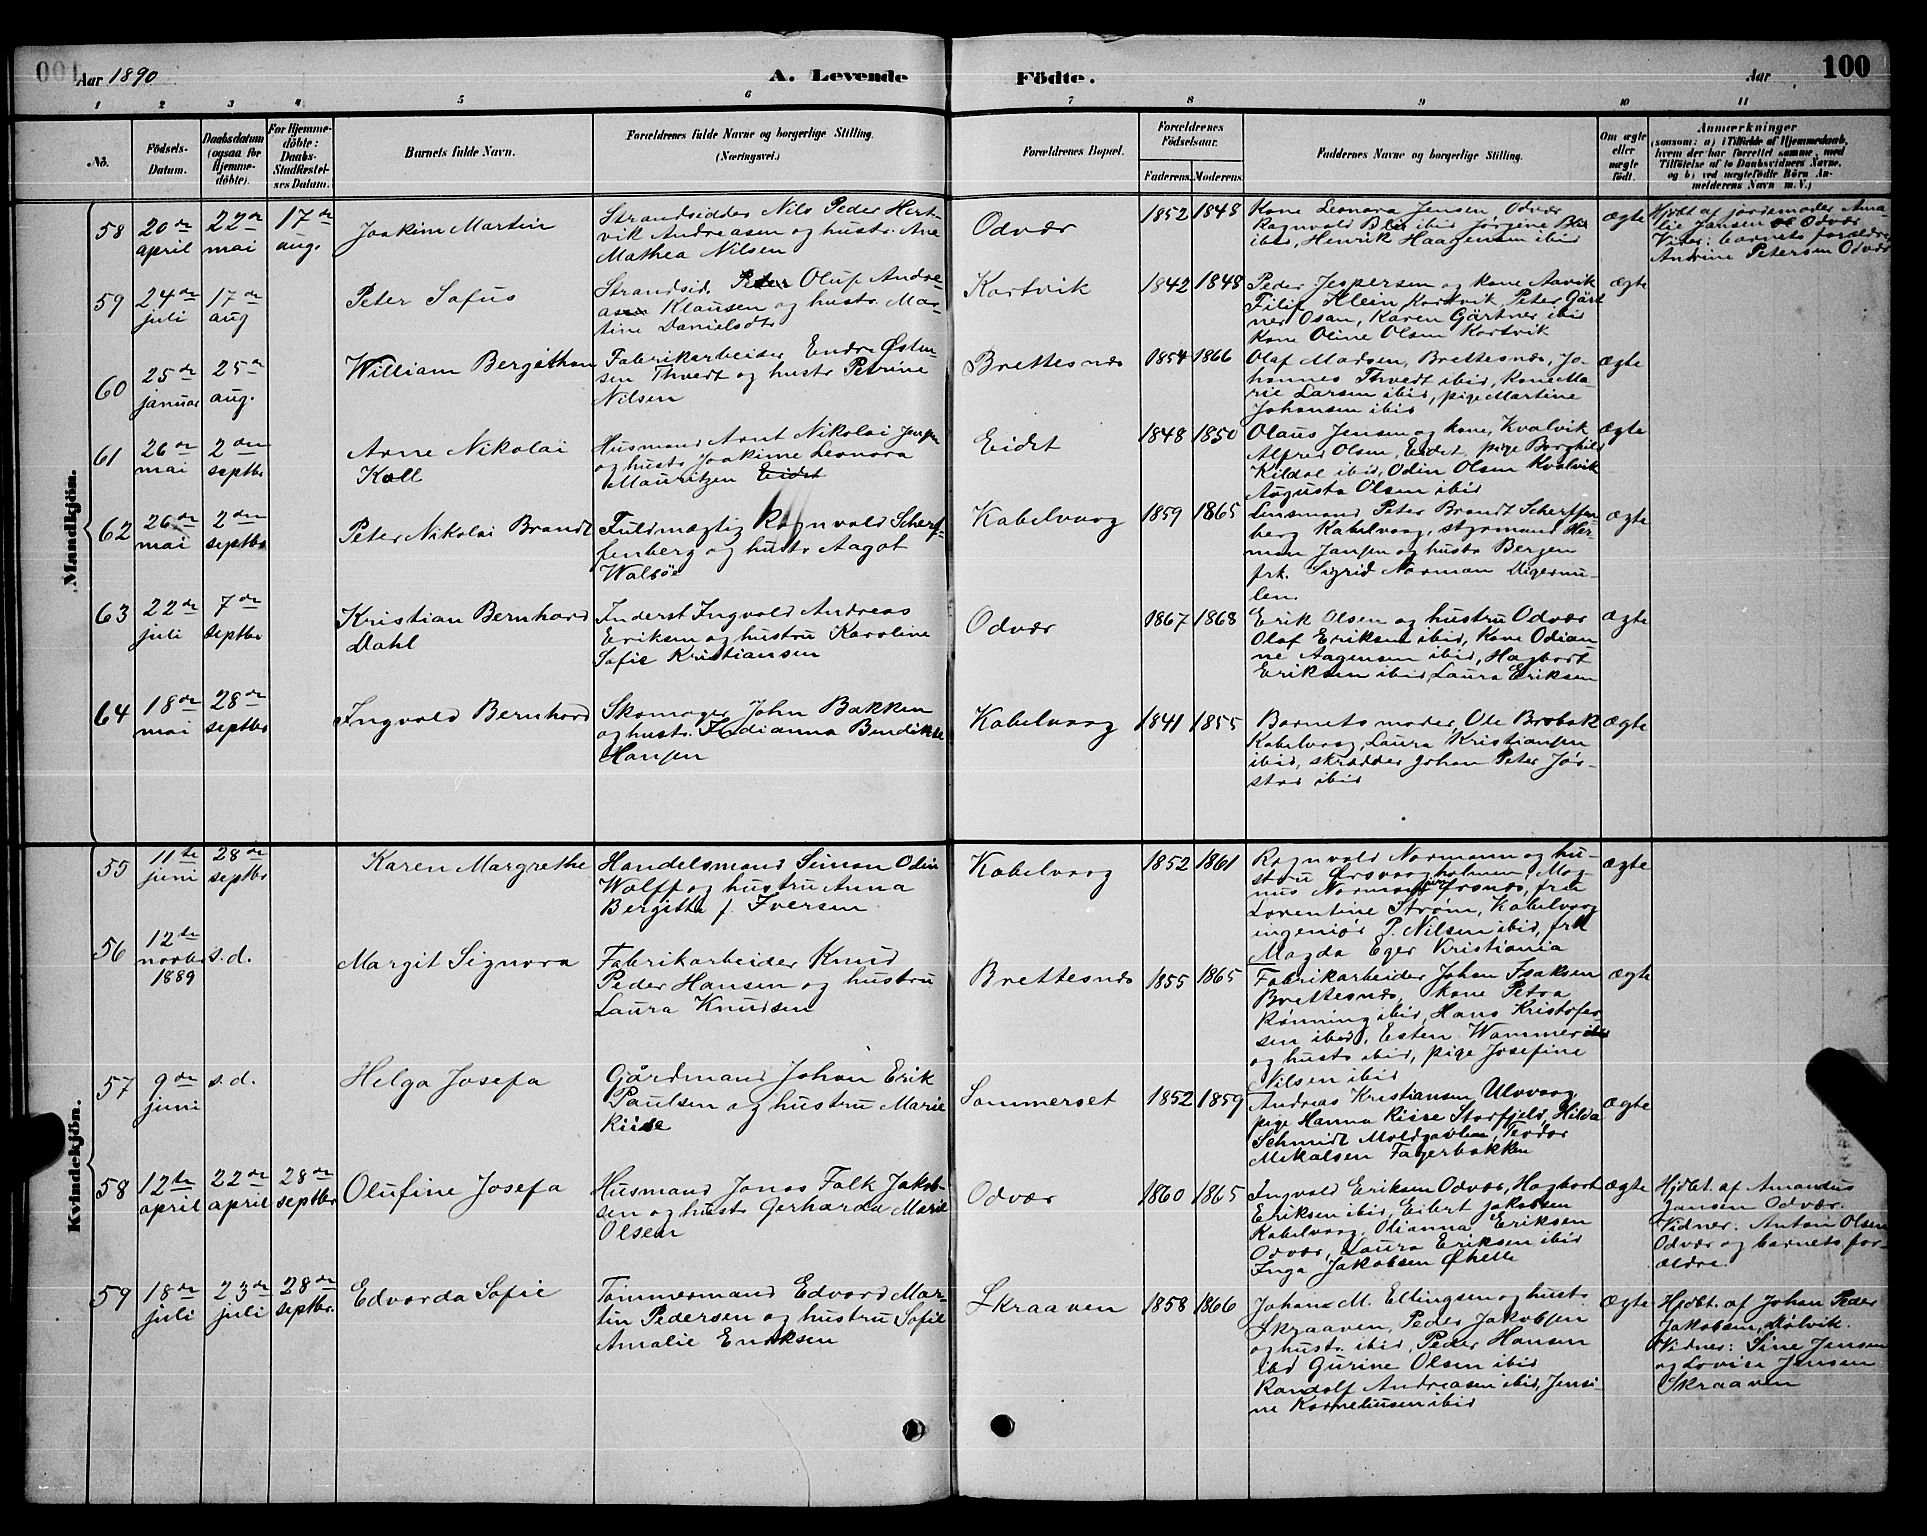 Aar 1890
A. Levende Födte.
Aar
100
1 2 3 4 5 6 7 8 9 10 11
No.
Födsels-Datum.
Daabsdatum (ogsaa for Hjemme-döbte).
For Hjemme-döbte: Daabs-Stadfæstel-ses Datum.
Barnets fulde Navn.
Forældrenes fulde Navne og borgerlige Stilling. (Næringsvei.)
Forældrenes Bopæl.
Forældrenes Födselsaar.
Faderens. Moderens.
Faddernes Navne og borgerlige Stilling.
Om ægte eller uægte födt.
Anmærkninger
(saasom: a) i Tilfælde af Hjemmedaab, hvem der har forrettet samme, med Tilföielse af to Daabsvidners Navne, og b) ved uægtefödte Börn An-melderens Navn m. V.)
Mandkjön.
58 20de april 22de mai 17de aug. Joakim Martin
Strandsidder Nils Peder Hert-
vik Andreasen og hustr. Ane
Mathea Nilsen
Odvær 1852 1848
Kone Leonora Jensen Odvær
Ragnvald Blix ibid Jørgine Blix
ibid, Henrik Haagensen ibid
ægte
Hjdbt af jordemoder Ama-
lie Jansen Odvær
Vidner: barnets forældre
Andrine Petersen Odvær
59 24de juli 17de aug Peter Sofus
Strandsid. Peder Oluf Andre-
asen Klausen og hustr. Mar-
tine Danielsdtr
Kortvik 1842 1848
Peder Jespersen og kone Aavik
Filip Klein Kortvik, Peter Gärt
ner Osan, Karen Gärtner ibid
Kone Oline Olsen Kortvik
ægte
60 25de januar 25de aug. William Bergithon
Fabrikarbeider Endre Østen-
sen Thvedt og hustr Petrine
Nilsen
Brettesnæs 1854 1866
Olaf Madsen, Brettesnæs, Jo-
hannes Thvedt ibid, Kone Ma-
rie Larsen ibid, pige Martine
Johansen ibid
ægte
61 26de mai 2den septbr Arne Nikolai
Koll
Husmand Arnt Nikolai Jensen
og hustr Joakime Leonora
Mauritzen Eidet
Eidet 1848 1850
Olaus Jensen og kone, Kvalvik
Alfred Olsen, Eidet, pige Borghild
Kildal ibid, Odin Olsen Kvalvik
Augusta Olsen ibid
ægte
62 26de mai 2den septbr Peter Nikolai Brandt
Fuldmægtig Ragnvald Scherf-
fenberg og hustr Aagot
Walböe
Kabelvaag 1859 1865
Lensmand Peter Brandt Scherffen-
berg Kabelvaag, styrmand Her-
man Jansen og hustr Bergen
frk. Sigrid Norman Digermu-
len.
ægte
63 22de juli 7de septbr Kristian Bernhard
Dahl
Inderst Ingvald Andreas
Eriksen og hustru Karoline
Sofie Kristiansen
Odvær 1867 1868
Erik Olsen og hustru Odvær
Olaf Eriksen ibid, Kone Odian-
ne Aagensen ibid, Hagbart
Eriksen ibid, Laura Eriksen
ægte
64 18de mai 28de septbr Ingvald Bernhard
Skomager John Bakken
og hustr. Hedianna Bendikte
Hansen
Kabelvaag 1841 1855
Barnets moder, Ole Brobak
Kabelvaag, Laura Kristiansen
ibid, skrædder Johan Peter Jør-
stad ibid
ægte
Kvindekjön.
55 11te juni 28de septbr Karen Margrethe
Handelsmand Simon Odin
Wolff og hustru Anna
Bergitta f. Iversen
Kabelvaag 1852 1861
Ragnvald Normann og hu-
stru Ørsvaagholmen, Mag-
nus Normann Ørsnæs, fru
Lorentine Strøm, Kabelvaag
ingeniør P. Nilsen ibid, frk
Magda Eger Kristiania
ægte
56 12te novbr 1889 s.d. Margit Signora
Fabrikarbeider Knud
Peder Hansen og hustru
Laura Knudsen
Brettesnæs 1855 1865
Fabrikarbeider Johan Isaksen
Brettesnæs, kone Petra
Rønning ibid, Hans Kristofer-
sen ibid, Esten Wammer ibid
og hustr ibid, pige Josefine
Nilsen ibid
ægte
57 9de juni s.d. Helga Josefa
Gårdmand Johan Erik
Paulsen og hustru Marie
Riise
Sommerset 1852 1859
Andreas Kristiansen Ulvvaag
pige Hanna Riise Storfjeld, Hilda
Schmidt Moldgavlen, Teodor
Mikalsen Fagerbakken
ægte
58 12te april 22de april 28de septbr Olufine Josefa
Husmand Jonas Falk Jakob-
sen og hustr Gerharda Marie
Olsen
Odvær 1860 1865
Ingvald Eriksen Odvær, Hagbart
Eriksen ibid, Eilert Jakobsen
Kabelvaag, Olianna Eriksen
Odvær, Laura Eriksen ibid
Inga Jakobsen Øhelle
ægte
Hjdbt. af Amandus
Jansen Odvær.
Vidner: Anton Olsen
Odvær og barnets for-
ældre.
59 18de juli 23de juli 28de septbr. Edvarda Sofie
Tömmermand Edvard Mar-
tin Pedersen og hustru Sofie
Amalie Eriksen
Skraaven 1858 1866
Johan M. Ellingsen og hustr
Skraaven, Peder Jakobsen
og hustr. ibid, Peder Hansen
ibd Gurine Olsen ibid
Randolf Andreasen ibid, Jensi-
ne Korneliusen ibid
ægte
Hjdbt. af Johan Peder
Jakobsen, Kolvik.
Vidner: Sine Jensen
og Lovise Jensen
Skraaven